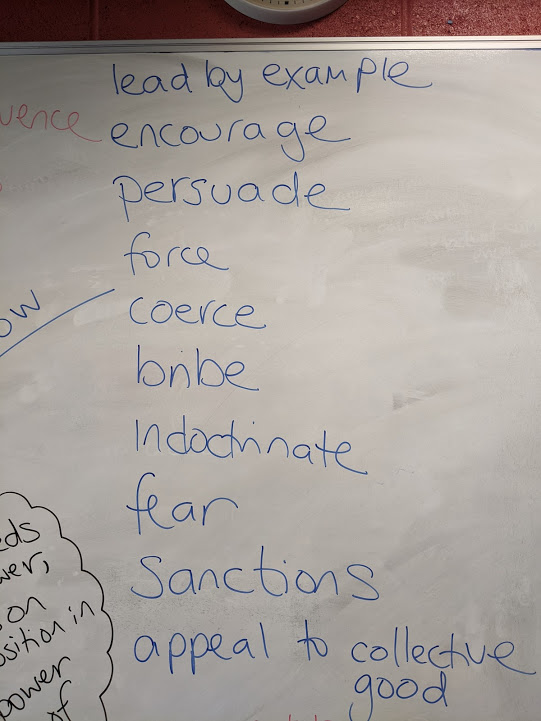 lead by example
encourage
persuade
force
coerce
bribe
Indoctrinate
fear
Sanctions
appeal to collective
good
on
in
power
of